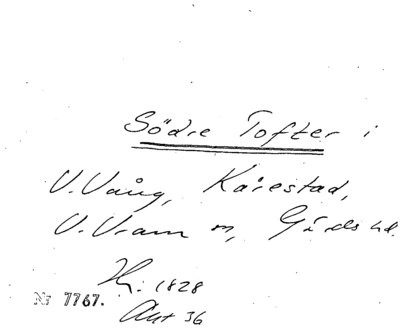 Södre Tofter i
V. Vång, Kårestad,
V. Vram m, Gårds hd.
1828
Nr 7767.
Akt 36